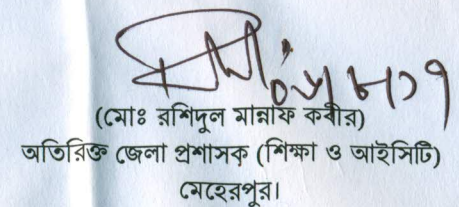 (মোঃ রশিদুল মান্নাফ কবীর)
অতিরিক্ত জেলা প্রশাসক (শিক্ষা ও আইসিটি)
মেহেরপুর।